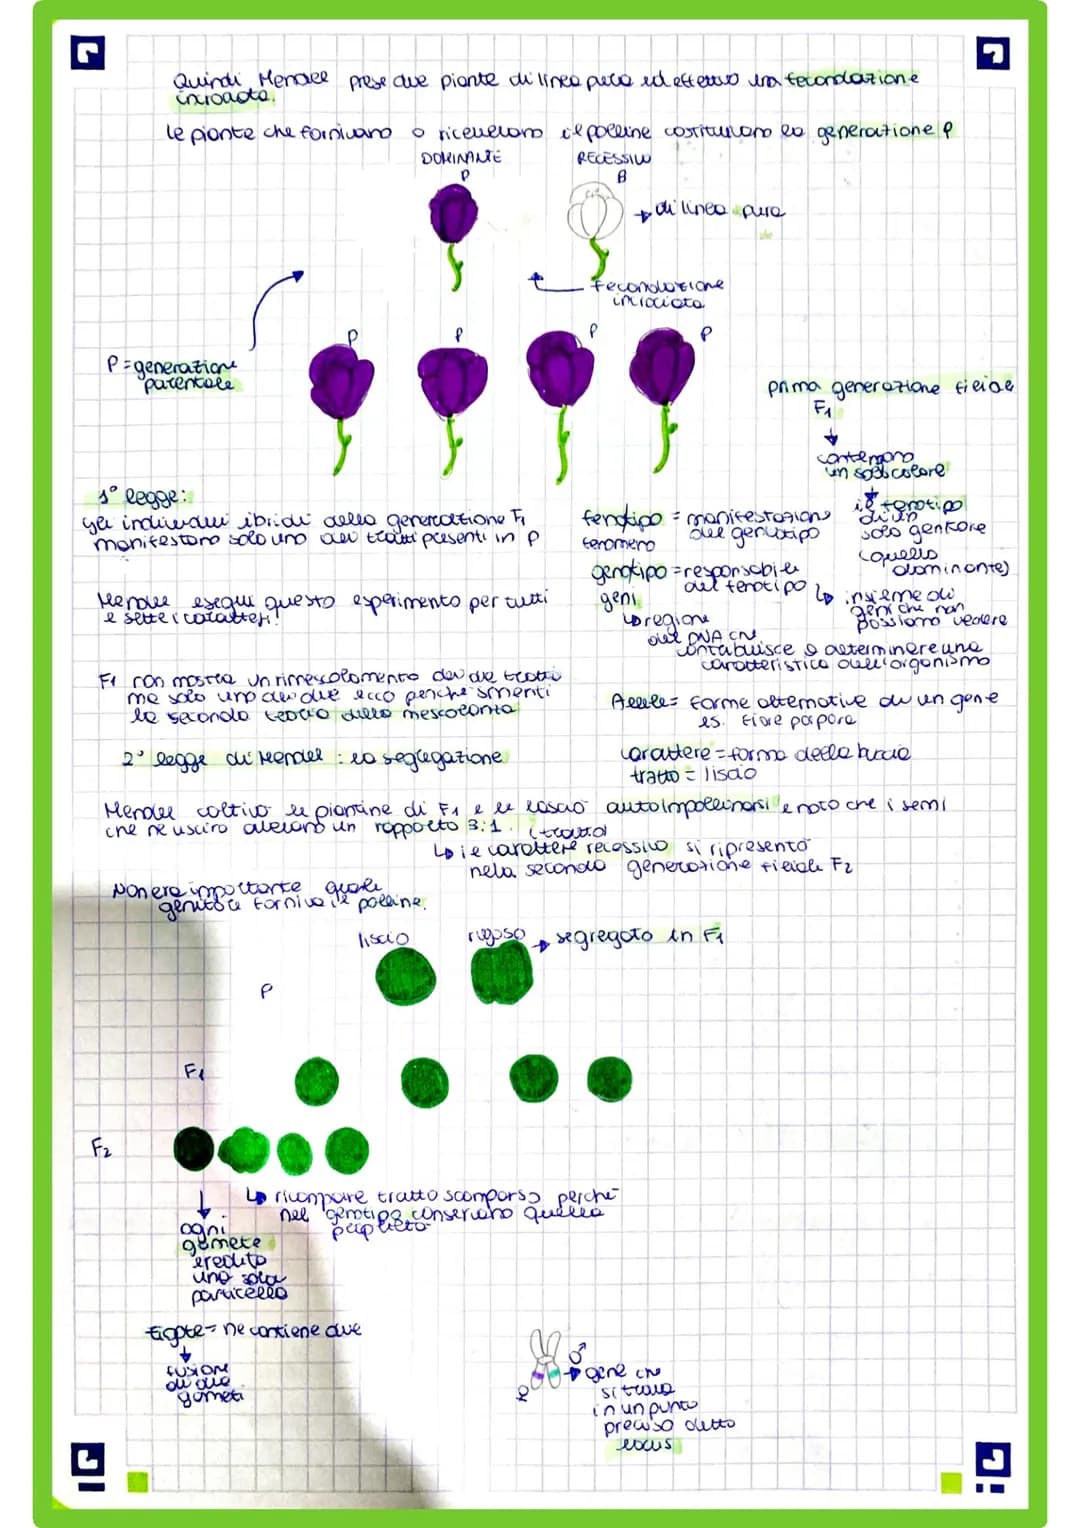 Quindi Mendel prese due piante di linea pura ed effettuò una fecondazione
incrociata.
le piante che fornivano o ricevevano il polline costituivano la generazione P
DOMINANTE
RECESSIVO
P
B
di linea pura
fecondazione
incrociata
P
P
P
P
P = generazione
parentale
prima generazione filiale
F1
contengono
un solo colore
il fenotipo
di un
solo genitore
(quello
dominante)
1° legge:
gli individui ibridi della generazione F1
manifestano solo uno dei tratti presenti in P
fenotipo = manifestazione
fenomeno del genotipo
genotipo = responsabile
geni del fenotipo
insieme di
geni che non
possiamo vedere
regione
del DNA che
contribuisce a determinare una
caratteristica dell'organismo
Mendel eseguì questo esperimento per tutti
e sette i caratteri!
F1 non mostra un rimescolamento dei due tratti
ma solo uno dei due ecco perché smentì
la seconda teoria della mescolanza
Allele = forme alternative di un gene
es. fiore porpora
2° legge di Mendel : la segregazione
carattere = forma della buccia
tratto = liscio
Mendel coltivò le piantine di F1 e le lasciò autoimpollinarsi e notò che i semi
che ne uscirono avevano un rapporto 3:1. (tratto)
il carattere recessivo si ripresentò
nella seconda generazione filiale F2
Non era importante quale
genitore forniva il polline.
liscio
rugoso
segregato in F1
P
F1
F2
ricompare tratto scomparso perché
nel genotipo conservano quella
ogni
gamete
eredita
una sola
particella
zigote = ne contiene due
fusione
di due
gameti
♂
♀
gene che
si trova
in un punto
preciso detto
locus